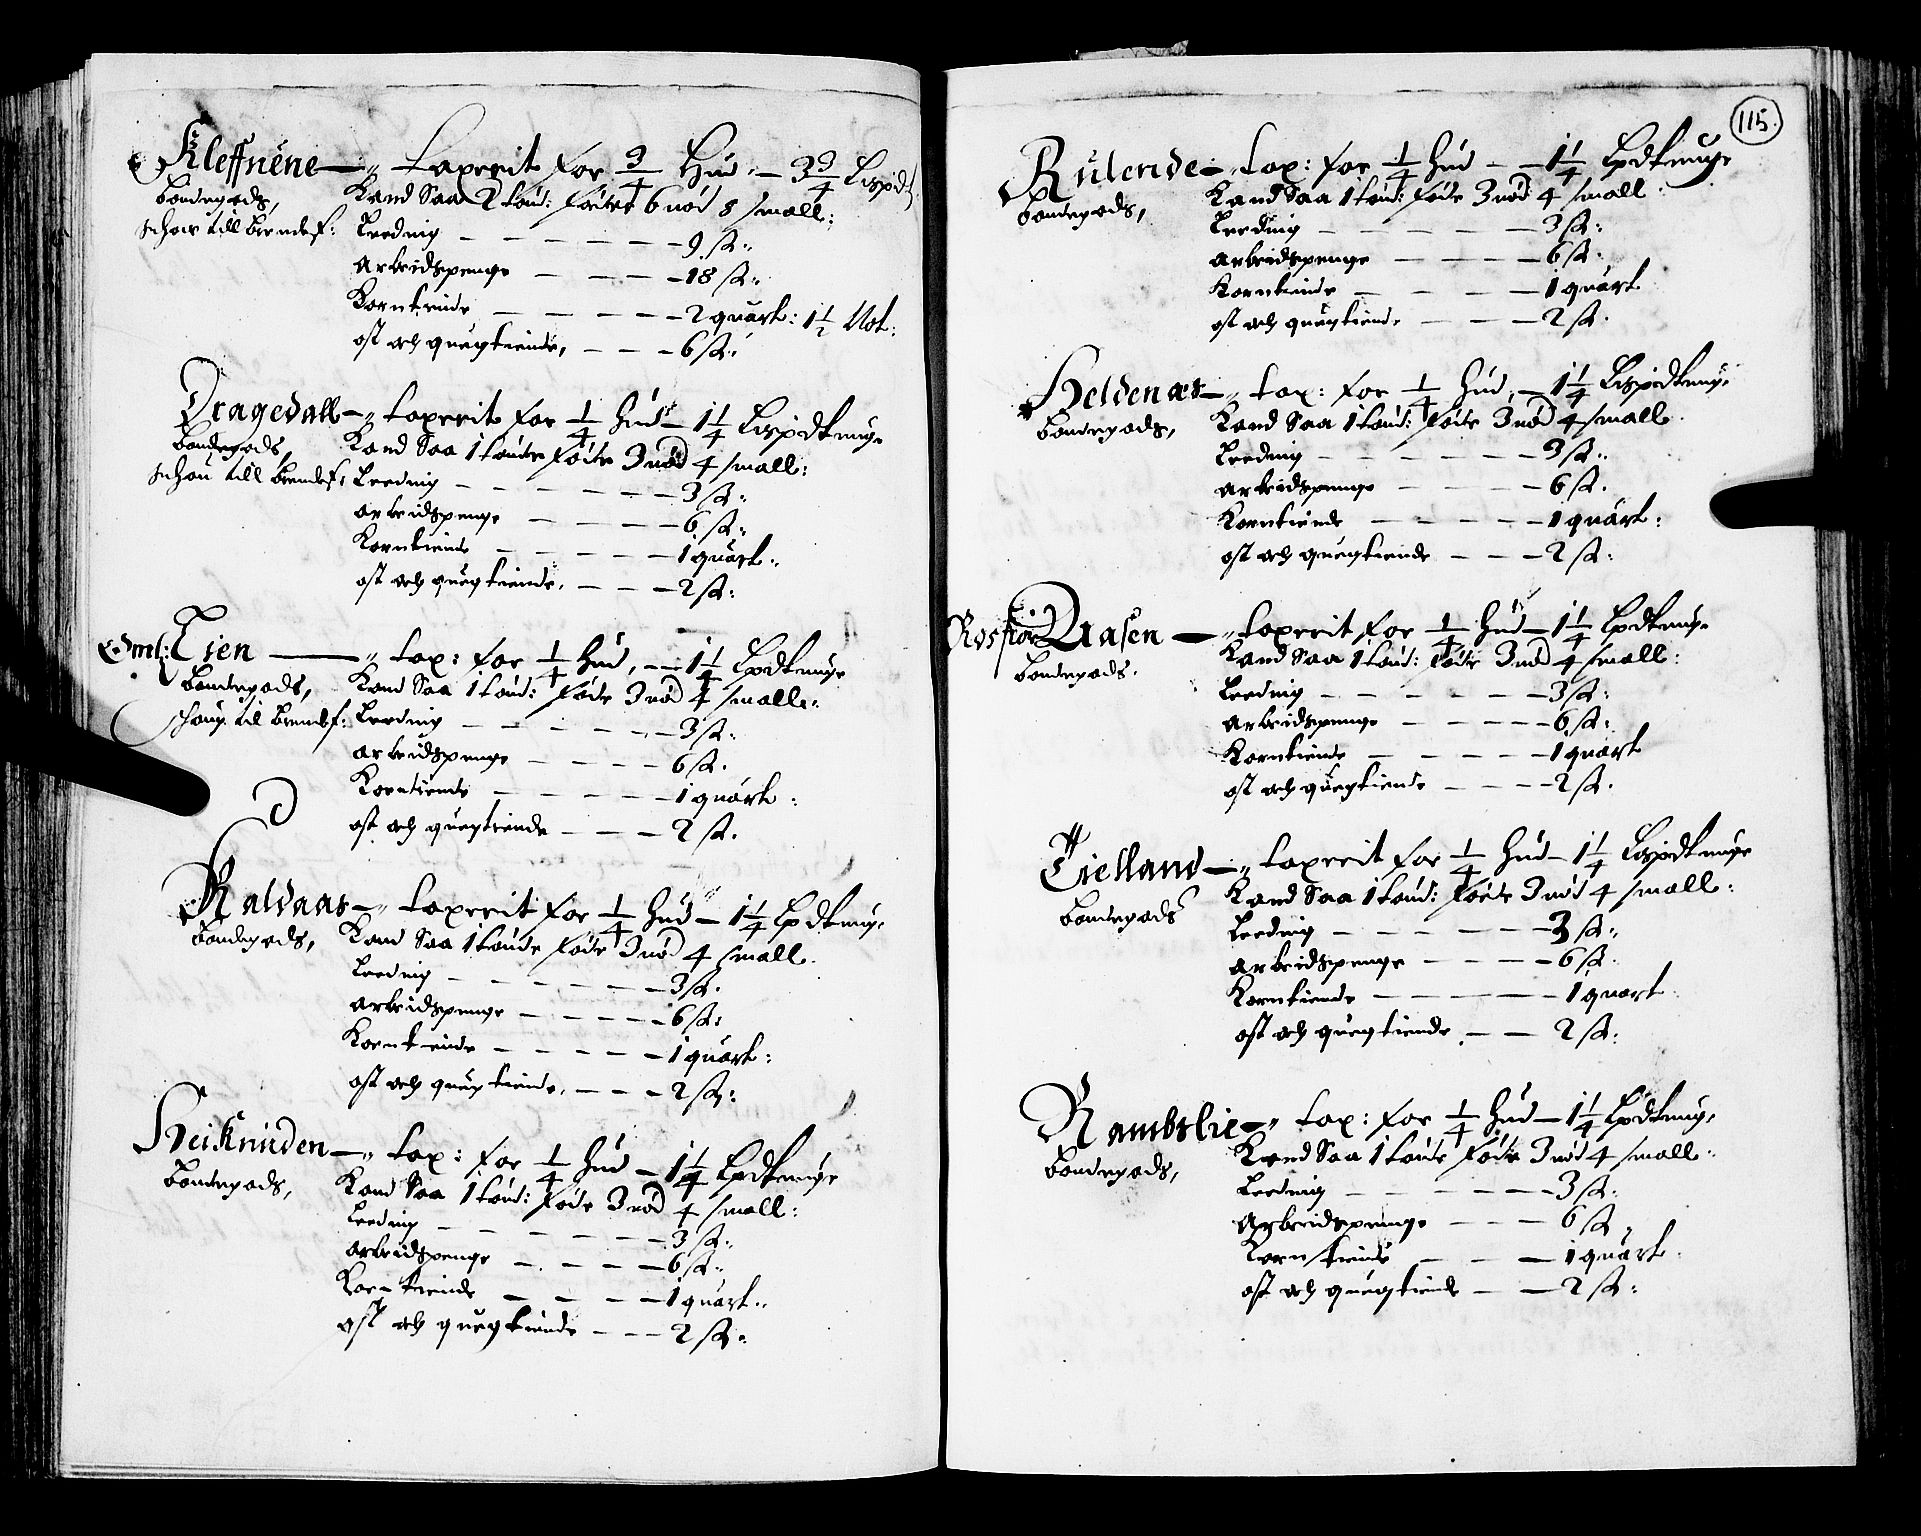 Kleffnene — taxerit for 3/4 Hud — 3 3/4 Lispdt
Bondegods, Kand Saa 2 tönd: föder 6 nöd 8 small:
schow till Brendef: Leeding — 9 sk:
Arbeidspenge — 18 sk:
Korntiende — 2 quart: 1 1/2 Not:
ost och quegtiende, — 6 sk:
Dragedall — taxerit for 1/4 Hud — 1 1/4 Lispdtunge
Bondegods, Kand Saa 1 tönde föder 3 nöd 4 small:
schou till Brendef: Leeding — 3 sk:
arbeidspenge — 6 sk:
Korntiende — 1 quart:
ost och quegtiende. — 2 sk:
Eien — tax: for 1/4 Hud, — 1 1/4 Lpdtunge
Bondegods, Kand Saa 1 tönd: föde 3 nöd 4 smalle:
schoug til Brendef: Leeding — 3 sk:
arbeidspenge — 6 sk.
Korntiende — 1 quart:
ost och quegtiende — 2 sk.
Raldaas — taxerit for 1/4 Hud — 1 1/4 Lpdtunge
Bondegods, Kand Saa 1 tönde föde 3 nöd 4 small.
Leeding — 3 sk.
arbeidspenge — 6 sk:
Korntiende — 1 quart:
ost och quegtiende. — 2 sk:
Heiknuden — tax: for 1/4 Hud — 1 1/4 Lpdtunge
Bondegods, Kand Saa 1 tönd: föde 3 nöd 4 small:
Leeding — 3 sk:
arbeidspenge — 6 sk:
Korntiende — 1 quart:
ost och quegtiende — 2 sk:
115.
Rulende — tax: for 1/4 Hud — 1 1/4 Lpdtunge
Bondegods, Kand Saa 1 tönd: föde 3 nöd 4 small:
Leeding — 3 sk:
arbeidspenge — 6 sk:
Korntiende — 1 quart
ost och quegtiende — 2 sk.
Heldenæs — tax: for 1/4 Hud, — 1 1/4 Lispdtunge
Bondegods, Kand Saa 1 tönd: föde 3 nöd 4 small.
Leeding — 3 sk:
arbeidspenge — 6 sk.
Korntiende — 1 quart:
ost och quegtiende — 2 sk:
Rosfior Aasen — taxerit for 1/4 Hud — 1 1/4 Lpdtunge
Bondegods. Kand Saa 1 tönd: föde 3 nöd 4 small:
Leeding — 3 sk:
arbeidspenge — 6 sk:
Korntiende — 1 quart
ost och quegtiende — 2 sk.
Eielland — taxerit for 1/4 Hud — 1 1/4 Lispdtunge
Bondegods Kand Saa 1 tönd: föde 3 nöd 4 small:
Leeding — 3 sk:
arbeidspenge — 6 sk.
Korntiende — 1 quart
ost och quegtiende — 2 sk:
Rambslie — tax: for 1/4 Hud — 1 1/4 Lpdtunge
Bondegods, Kand Saa 1 tönde föde 3 nöd 4 small:
Leeding — 3 sk:
Arbeidspenge — 6 sk
Korntiende — 1 quart.
ost och quegtiende — 2 sk: